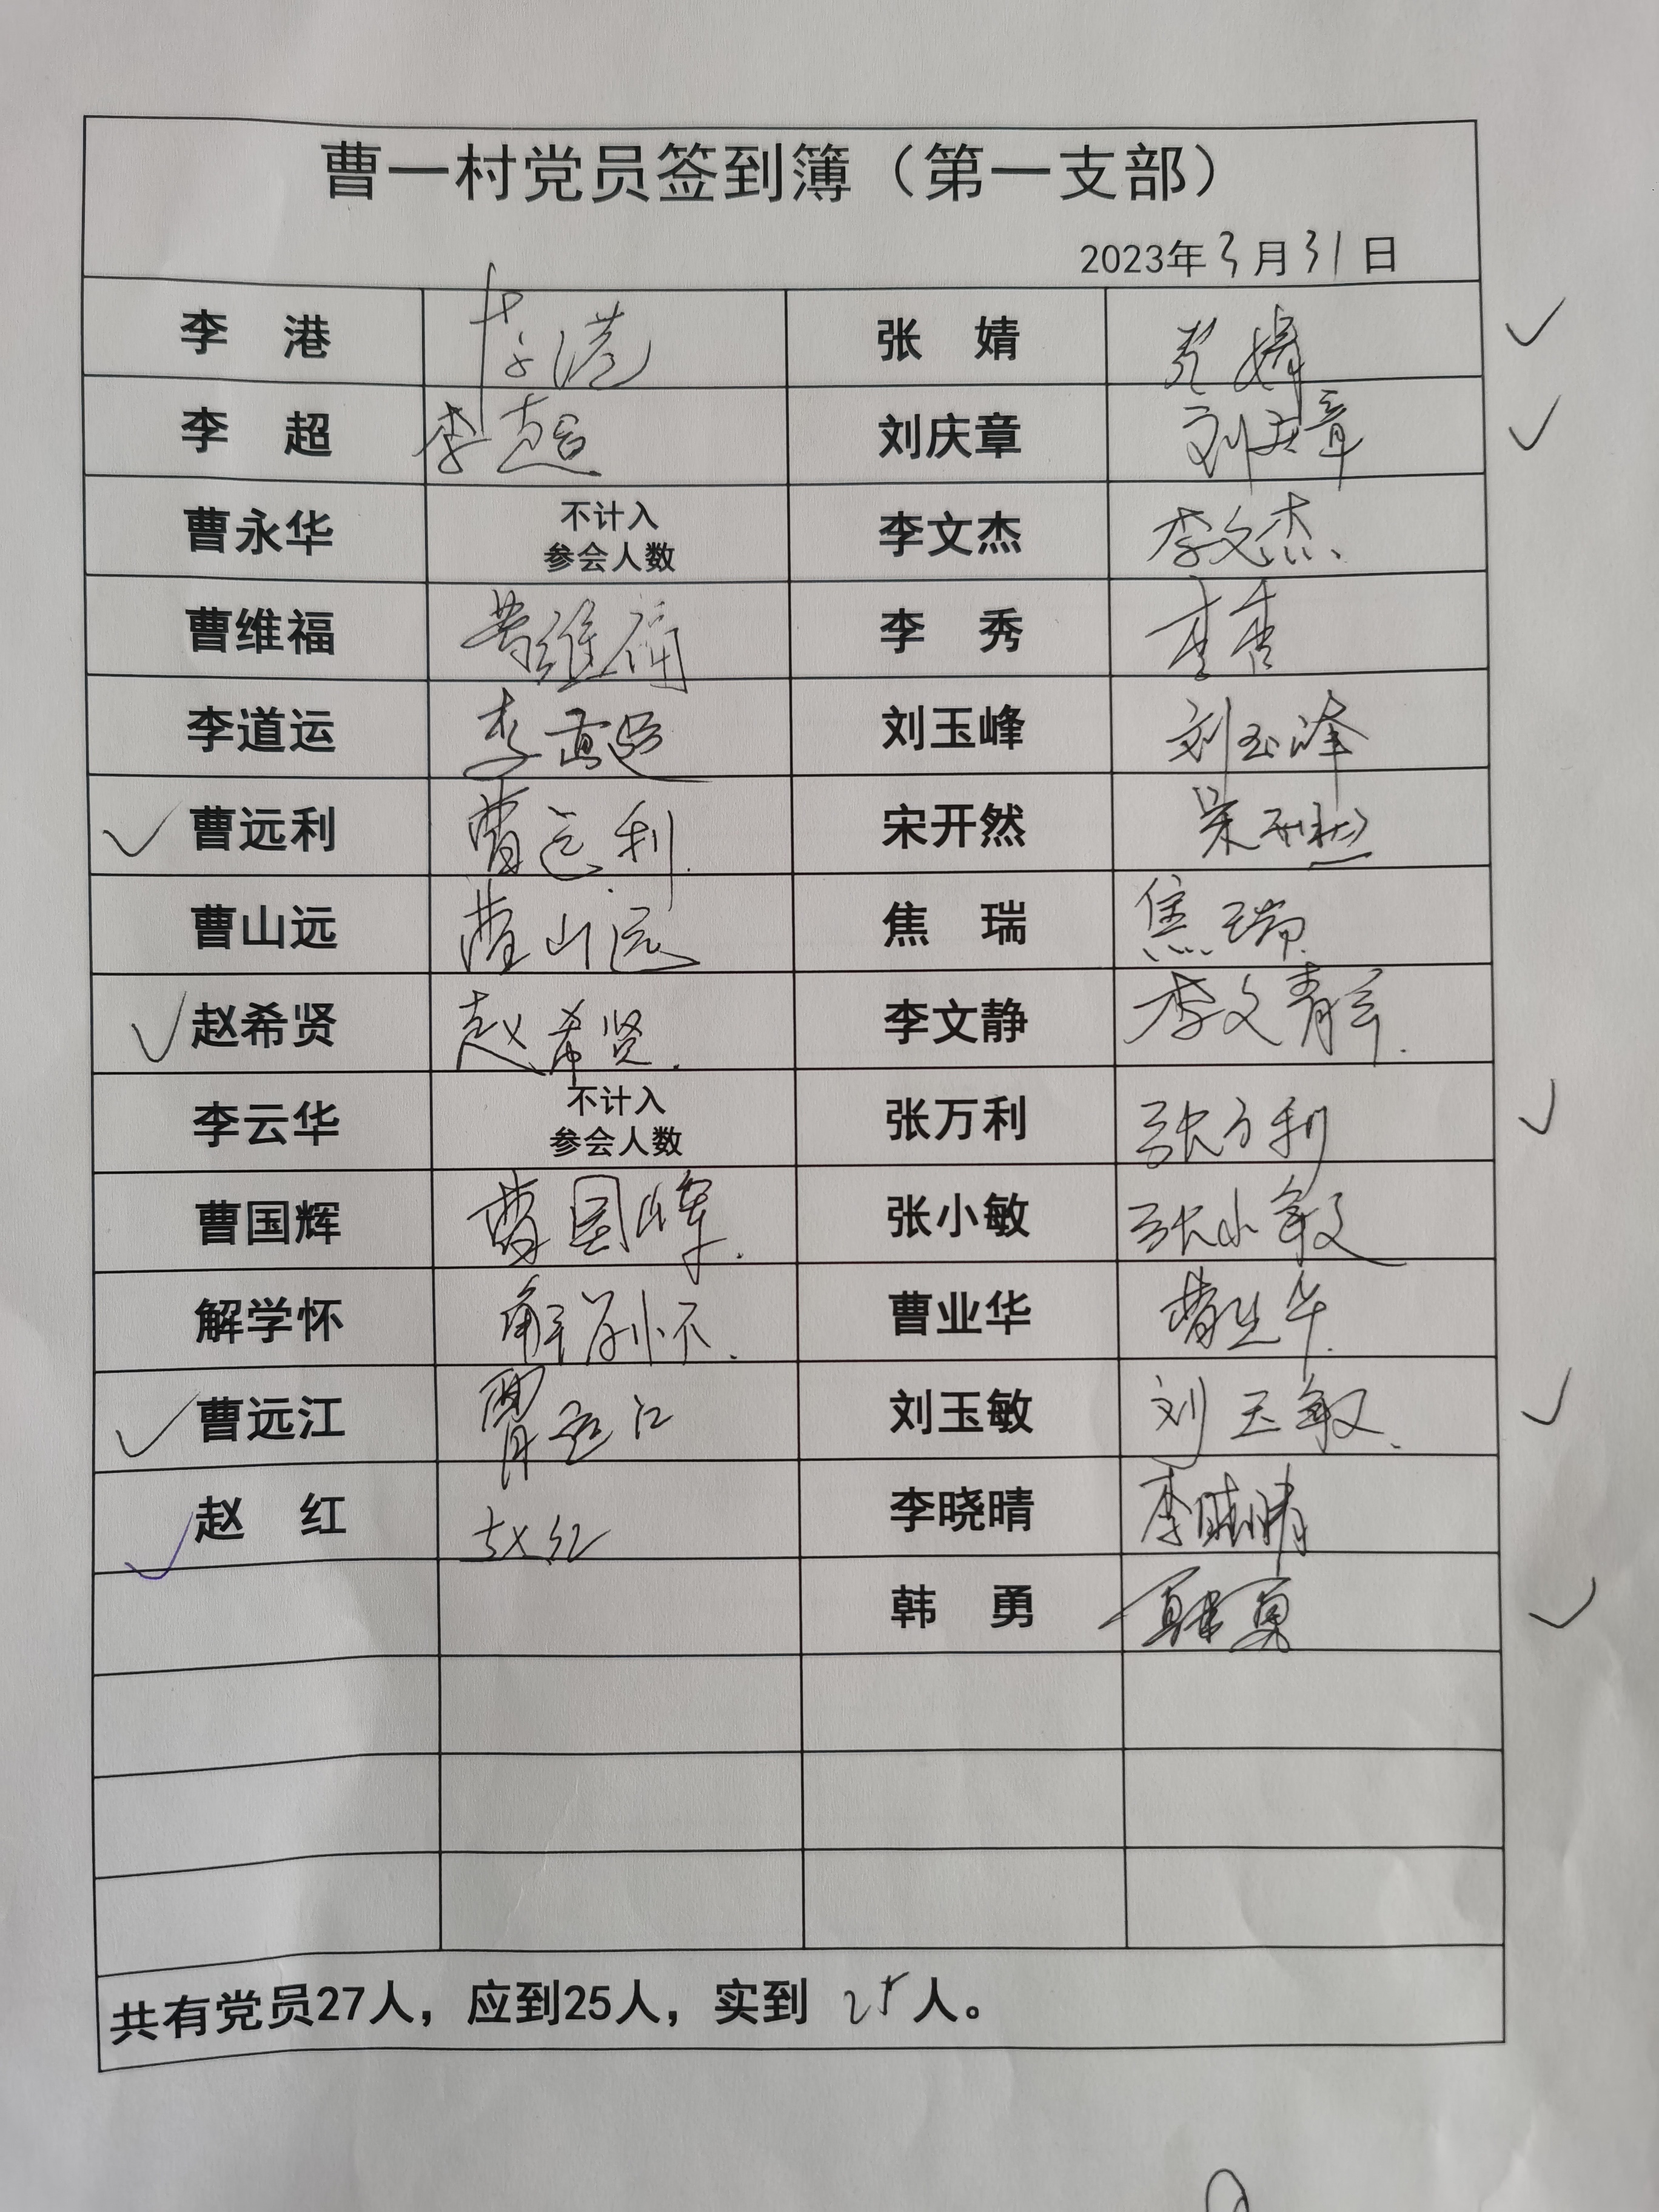 曹一村党员签到簿（第一支部）
2023年3月31日
李 港 李港 张 婧 张婧
李 超 李超 刘庆章 刘庆章
曹永华 不计入 参会人数 李文杰 李文杰
曹维福 曹维福 李 秀 李秀
李道运 李道运 刘玉峰 刘玉峰
曹远利 曹远利 宋开然 宋开然
曹山远 曹山远 焦 瑞 焦瑞
赵希贤 赵希贤 李文静 李文静
李云华 不计入 参会人数 张万利 张万利
曹国辉 曹国辉 张小敏 张小敏
解学怀 解学怀 曹业华 曹业华
曹远江 曹远江 刘玉敏 刘玉敏
赵 红 赵红 李晓晴 李晓晴
韩 勇 韩勇
共有党员27人，应到25人，实到 25 人。